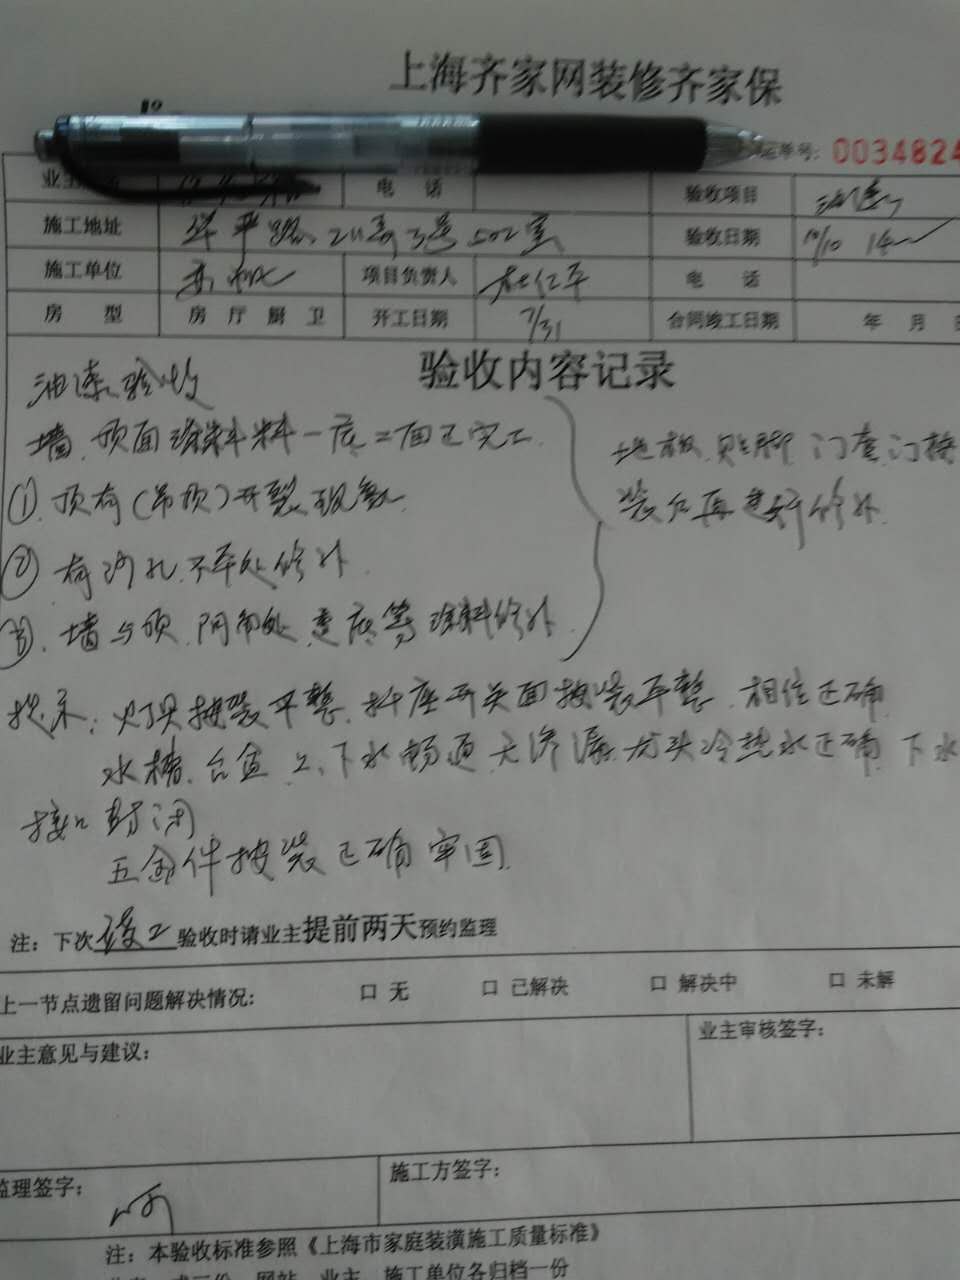 上海齐家网装修齐家保
单号: 0034824
业主 电 话 验收项目 油漆
施工地址 华平路211弄3号502室 验收日期 10/10 14
施工单位 项目负责人 杜仁平 电 话
房 型 房 厅 厨 卫 开工日期 7/31 合同竣工日期 年 月
验收内容记录
油漆验收
墙、顶面涂料料一底二面已完工.
①.顶有(吊顶)开裂现象.
②有沙孔.不平处修补.
③.墙与顶.阴角处、等涂料修补.
地板.贴脚.门套.门
装后再进行修补.
提示:灯具按装平整.插座开关面按装平整.相位正确.
水槽.台盆 上、下水畅通.无渗漏.龙头冷热水正确.下水
接口封闭
五金件按装正确牢固.
注: 下次竣工验收时请业主提前两天预约监理
上一节点遗留问题解决情况: □ 无 □ 已解决 □ 解决中 □ 未解
业主意见与建议: 业主审核签字:
监理签字: 施工方签字:
注: 本验收标准参照《上海市家庭装潢施工质量标准》
份、网站、业主、施工单位各归档一份